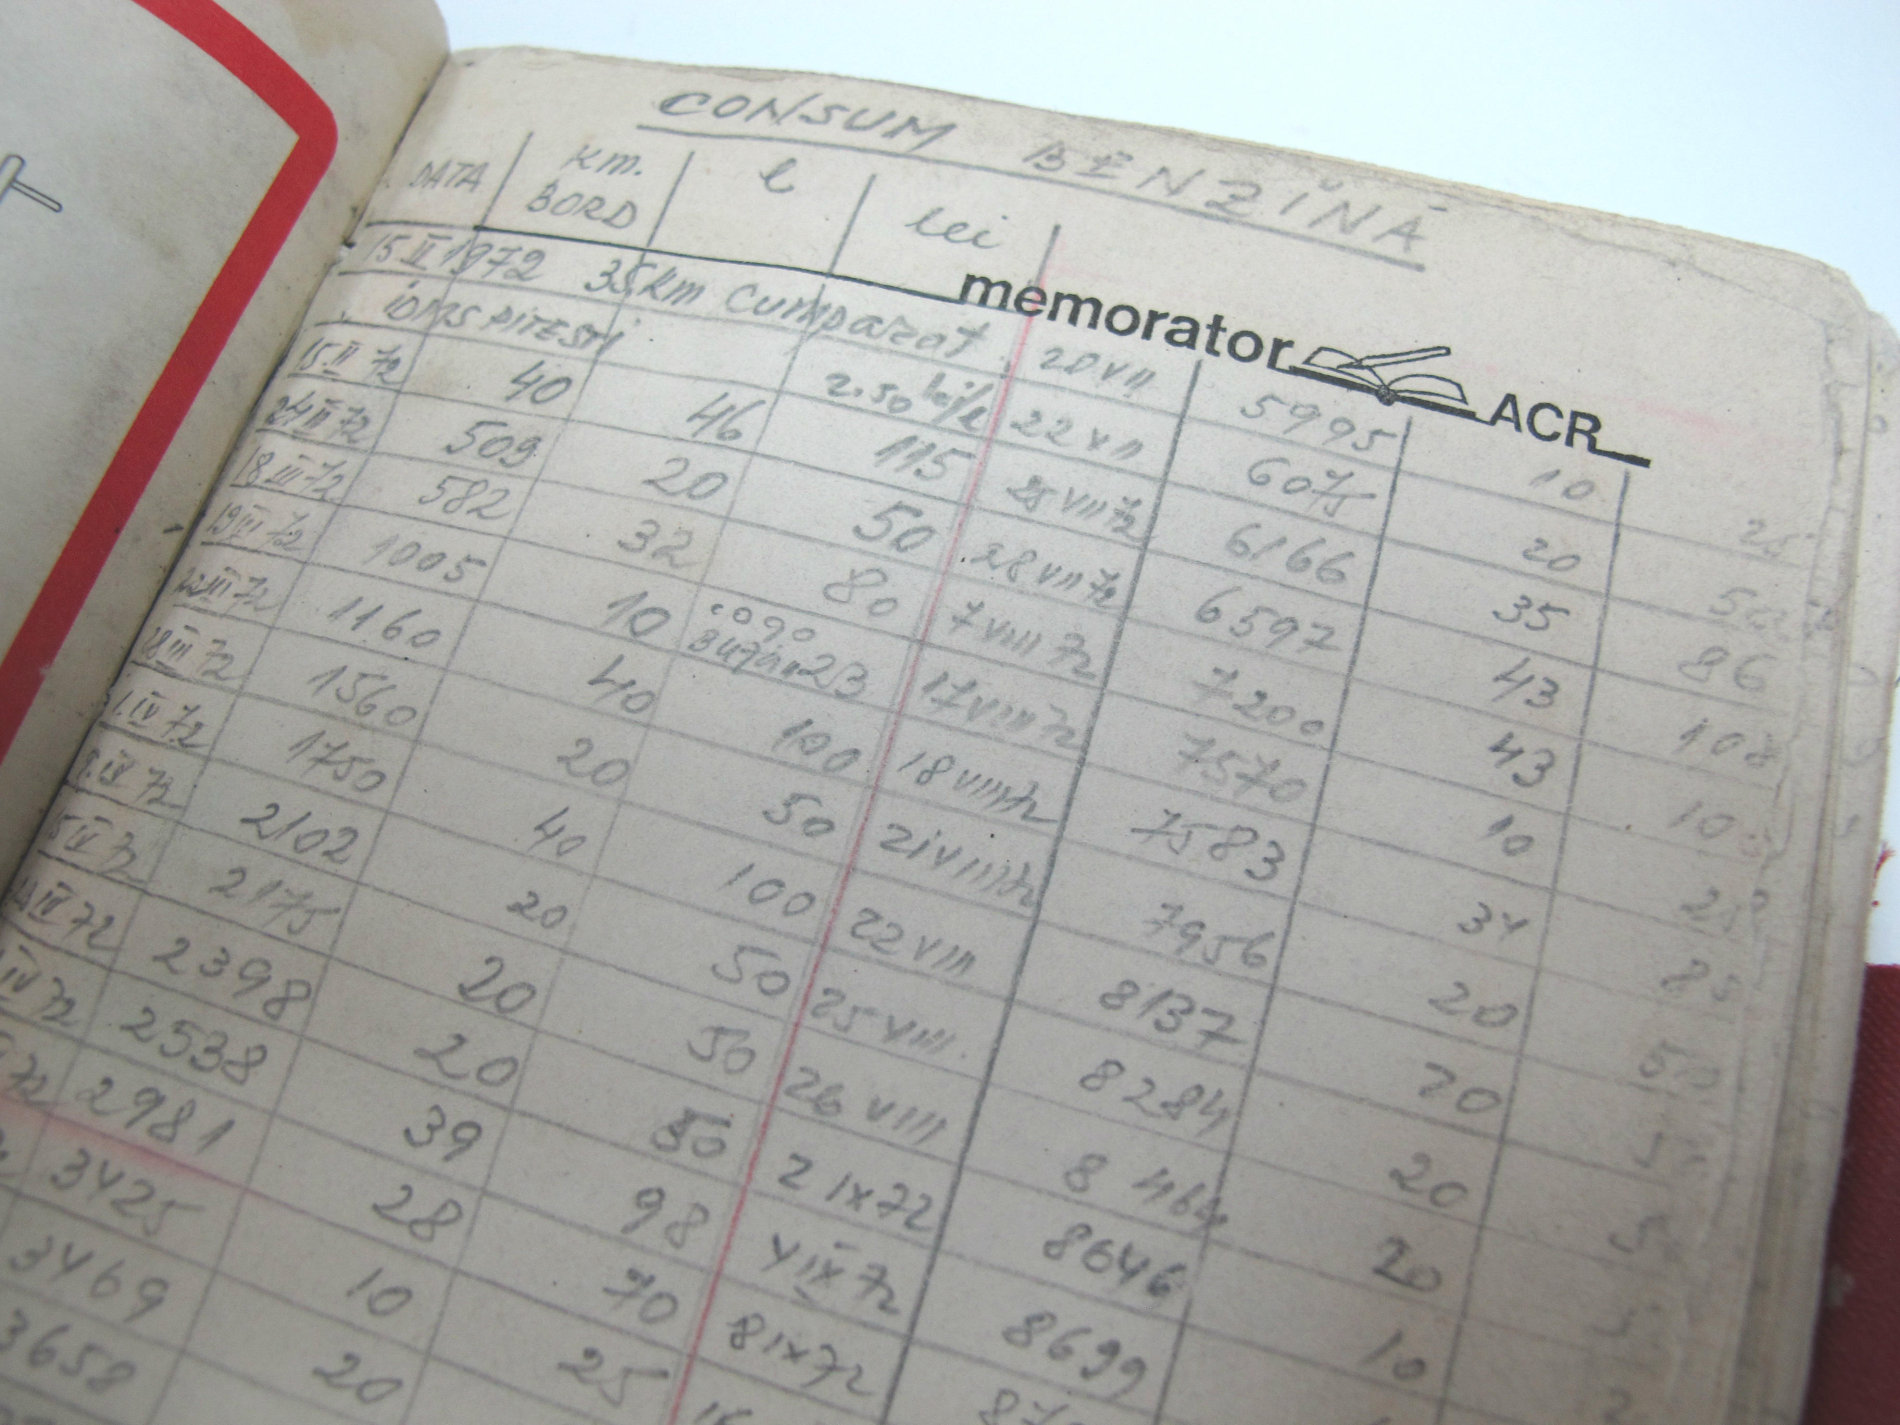 CONSUM BENZINĂ
DATA KM. BORD l lei
memorator ACR
15 II 1972 35 km Cumparat
IDMS PITESTI
15 II 72 40 46 2.50 lei/l 115
509 20 50
18 III 72 582 32 80
19 III 72 1005 10 23
1160 40 100
28 III 72 1560 20 50
1.IV 72 1750 40 100
IV 72 2102 20 50
IV 72 2175 20 50
IV 72 2398 20 50
IV 72 2538 39 98
72 2981 28 70
3425 10 25
3469 20
3658
20 VII 5995 10 25
22 VII 6075 20 50
25 VII 72 6166 35 86
28 VII 72 6597 43 108
7 VIII 72 7200 43
17 VIII 72 7570 10
18 VIII 72 7583 34
21 VIII 72 7956 20
22 VIII 8137 20
25 VIII 8284 20
26 VIII 8464 20
2 IX 72 8646 10
4 IX 72 8699
8 IX 72